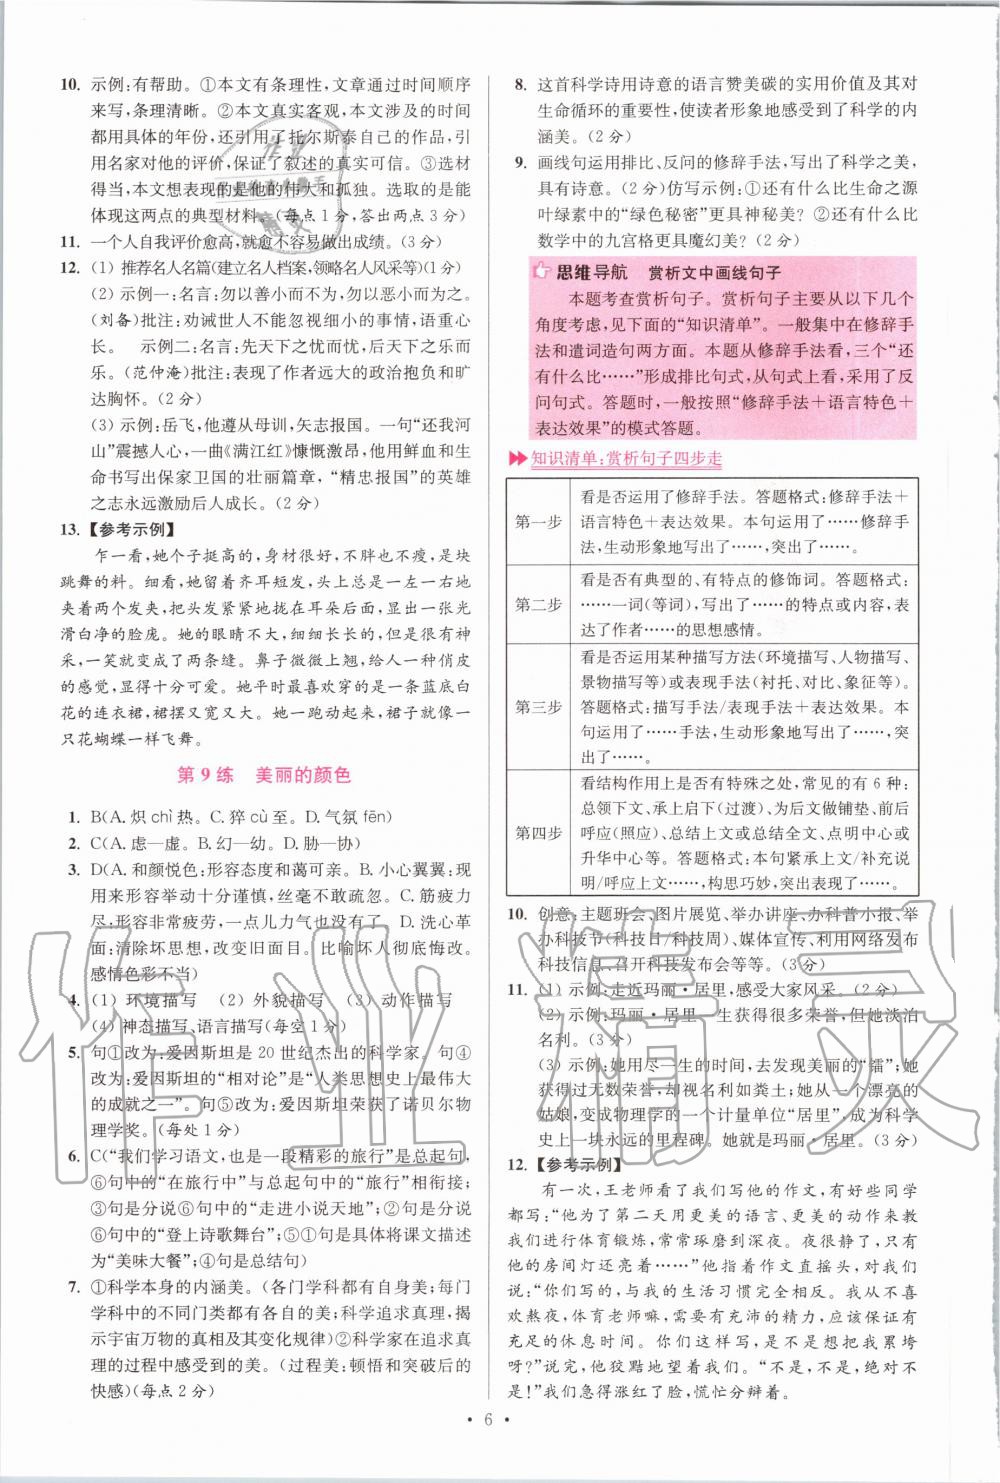 10. 示例:有帮助。①本文有条理性,文章通过时间顺序
来写,条理清晰。②本文真实客观,本文涉及的时间
都用具体的年份,还引用了托尔斯泰自己的作品,引
用名家对他的评价,保证了叙述的真实可信。③选材
得当,本文想表现的是他的伟大和孤独。选取的是能
体现这两点的典型材料。(每点1分,答出两点3分)
11. 一个人自我评价愈高,就愈不容易做出成绩。(3分)
12. (1) 推荐名人名篇(建立名人档案,领略名人风采等)(1分)
(2) 示例一:名言:勿以善小而不为,勿以恶小而为之。
(刘备)批注:劝诫世人不能忽视细小的事情,语重心
长。 示例二:名言:先天下之忧而忧,后天下之乐而
乐。(范仲淹)批注:表现了作者远大的政治抱负和旷
达胸怀。(2分)
(3) 示例:岳飞,他遵从母训,矢志报国。一句“还我河
山”震撼人心,一曲《满江红》慷慨激昂,他用鲜血和生
命书写出保家卫国的壮丽篇章,“精忠报国”的英雄
之志永远激励后人成长。(2分)
13.【参考示例】
乍一看,她个子挺高的,身材很好,不胖也不瘦,是块
跳舞的料。细看,她留着齐耳短发,头上总是一左一右地
夹着两个发夹,把头发紧紧地拢在耳朵后,露出一张光
滑白净的脸庞。她的眼睛不大,细细长长的,但是很有神
采,一笑就变成了两条缝。鼻子微微上翘,给人一种俏皮
的感觉,显得十分可爱。她平时最喜欢穿的是一条蓝底白
花的连衣裙,裙摆又宽又大。她一跑动起来,裙子就像一
只花蝴蝶一样飞舞。
第9练 美丽的颜色
1. B(A. 炽 chì 热。C. 猝 cù 至。D. 气氛 fēn)
2. C(A. 虑—虚。B. 幻—幼。D. 胁—协)
3. D(A. 和颜悦色:形容态度和蔼可亲。B. 小心翼翼:现
用来形容举动十分谨慎,丝毫不敢疏忽。C. 筋疲力
尽:形容非常疲劳,一点儿力气也没有。D. 洗心革
面:清除坏思想,改变旧面目。比喻坏人彻底悔改。
感情色彩不当)
4. (1) 环境描写 (2) 外貌描写 (3) 动作描写
(4) 神态描写、语言描写(每空1分)
5. 句①改为:爱因斯坦是20世纪杰出的科学家。句④
改为:爱因斯坦的“相对论”是“人类思想史上最伟大
的成就之一”。句⑤改为:爱因斯坦荣获了诺贝尔物
理学奖。(每处1分)
6. C(“我们学习语文,也是一段精彩的旅行”是总起句,
⑥句中的“在旅行中”与总起句中的“旅行”相衔接;
③句是分说⑥句中的“走进小说天地”;②句是分说
⑥句中的“登上诗歌舞台”;⑤句是将课文描述
为“美味大餐”;④句是总结句)
7. ①科学本身的内涵美。(各门学科都有自身美;每门
学科中的不同门类都有各自的美;科学追求真理,揭
示宇宙万物的真相及其变化规律)②科学家在追求真
理的过程中感受到的美。(过程美:顿悟和突破后的
快感)(每点2分)
8. 这首科学诗用诗意的语言赞美碳的实用价值及其对
生命循环的重要性,使读者形象地感受到了科学的内
涵美。(2分)
9. 画线句运用排比、反问的修辞手法,写出了科学之美,
具有诗意。(2分)仿写示例:①还有什么比生命之源
叶绿素中的“绿色秘密”更具神秘美? ②还有什么比
数学中的九宫格更具魔幻美?(2分)
思维导航 赏析文中画线句子
本题考查赏析句子。赏析句子主要从以下几个
角度考虑,见下面的“知识清单”。一般集中在修辞手
法和遣词造句两方面。本题从修辞手法看,三个“还
有什么比……”形成排比句式,从句式上看,采用了反
问句式。答题时,一般按照“修辞手法+语言特色+
表达效果”的模式答题。
知识清单:赏析句子四步走
第一步
看是否运用了修辞手法。答题格式:修辞手法+
语言特色+表达效果。本句运用了……修辞手
法,生动形象地写出了……,突出了……。
第二步
看是否有典型的、有特点的修饰词。答题格式:
……一词(等词),写出了……的特点或内容,表
达了作者……的思想感情。
第三步
看是否运用某种描写方法(环境描写、人物描写、
景物描写等)或表现手法(衬托、对比、象征等)。
答题格式:描写手法/表现手法+表达效果。本
句运用了……手法,生动形象地写出了……,突
出了……。
第四步
看结构作用上是否有特殊之处,常见的有6种:
总领下文、承上启下(过渡)、为后文做铺垫、前后
呼应(照应)、总结上文或总结全文、点明中心或
升华中心等。答题格式:本句紧承上文/补充说
明/呼应上文……,构思巧妙,突出表现了……
10. 创意:主题班会、图片展览、举办讲座、办科普小报、举
办科技节(科技日/科技周)、媒体宣传、利用网络发布
科技信息、召开科技发布会等等。(3分)
11. (1) 示例:走近玛丽·居里,感受大家风采。(2分)
(2) 示例:玛丽·居里一生获得很多荣誉,但她淡泊
名利。(3分)
(3) 示例:她用尽一生的时间,去发现美丽的“镭”;她
获得过无数荣誉,却视名利如粪土;她从一个漂亮的
姑娘,变成物理学的一个计量单位“居里”,成为科学
史上一块永远的里程碑。她就是玛丽·居里。(3分)
12.【参考示例】
有一次,王老师看了我们写他的作文,有好些同学
都写:“他为了第二天用更美的语言、更美的动作来教
我们进行体育锻炼,常常琢磨到深夜。夜很静了,只有
他的房间灯还亮着……”他指着作文直摇头,对我们
说:“你们写的,与我的生活习惯完全相反。我从不喜
欢熬夜,体育老师嘛,需要有充沛的精力,应该保证有
充足的休息时间。你们这样写,是不是想把我累垮
呀?”说完,他狡黠地望着我们。“不是,不是,绝对不
是!”我们急得涨红了脸,慌忙分辩着。
· 6 ·
作业精灵